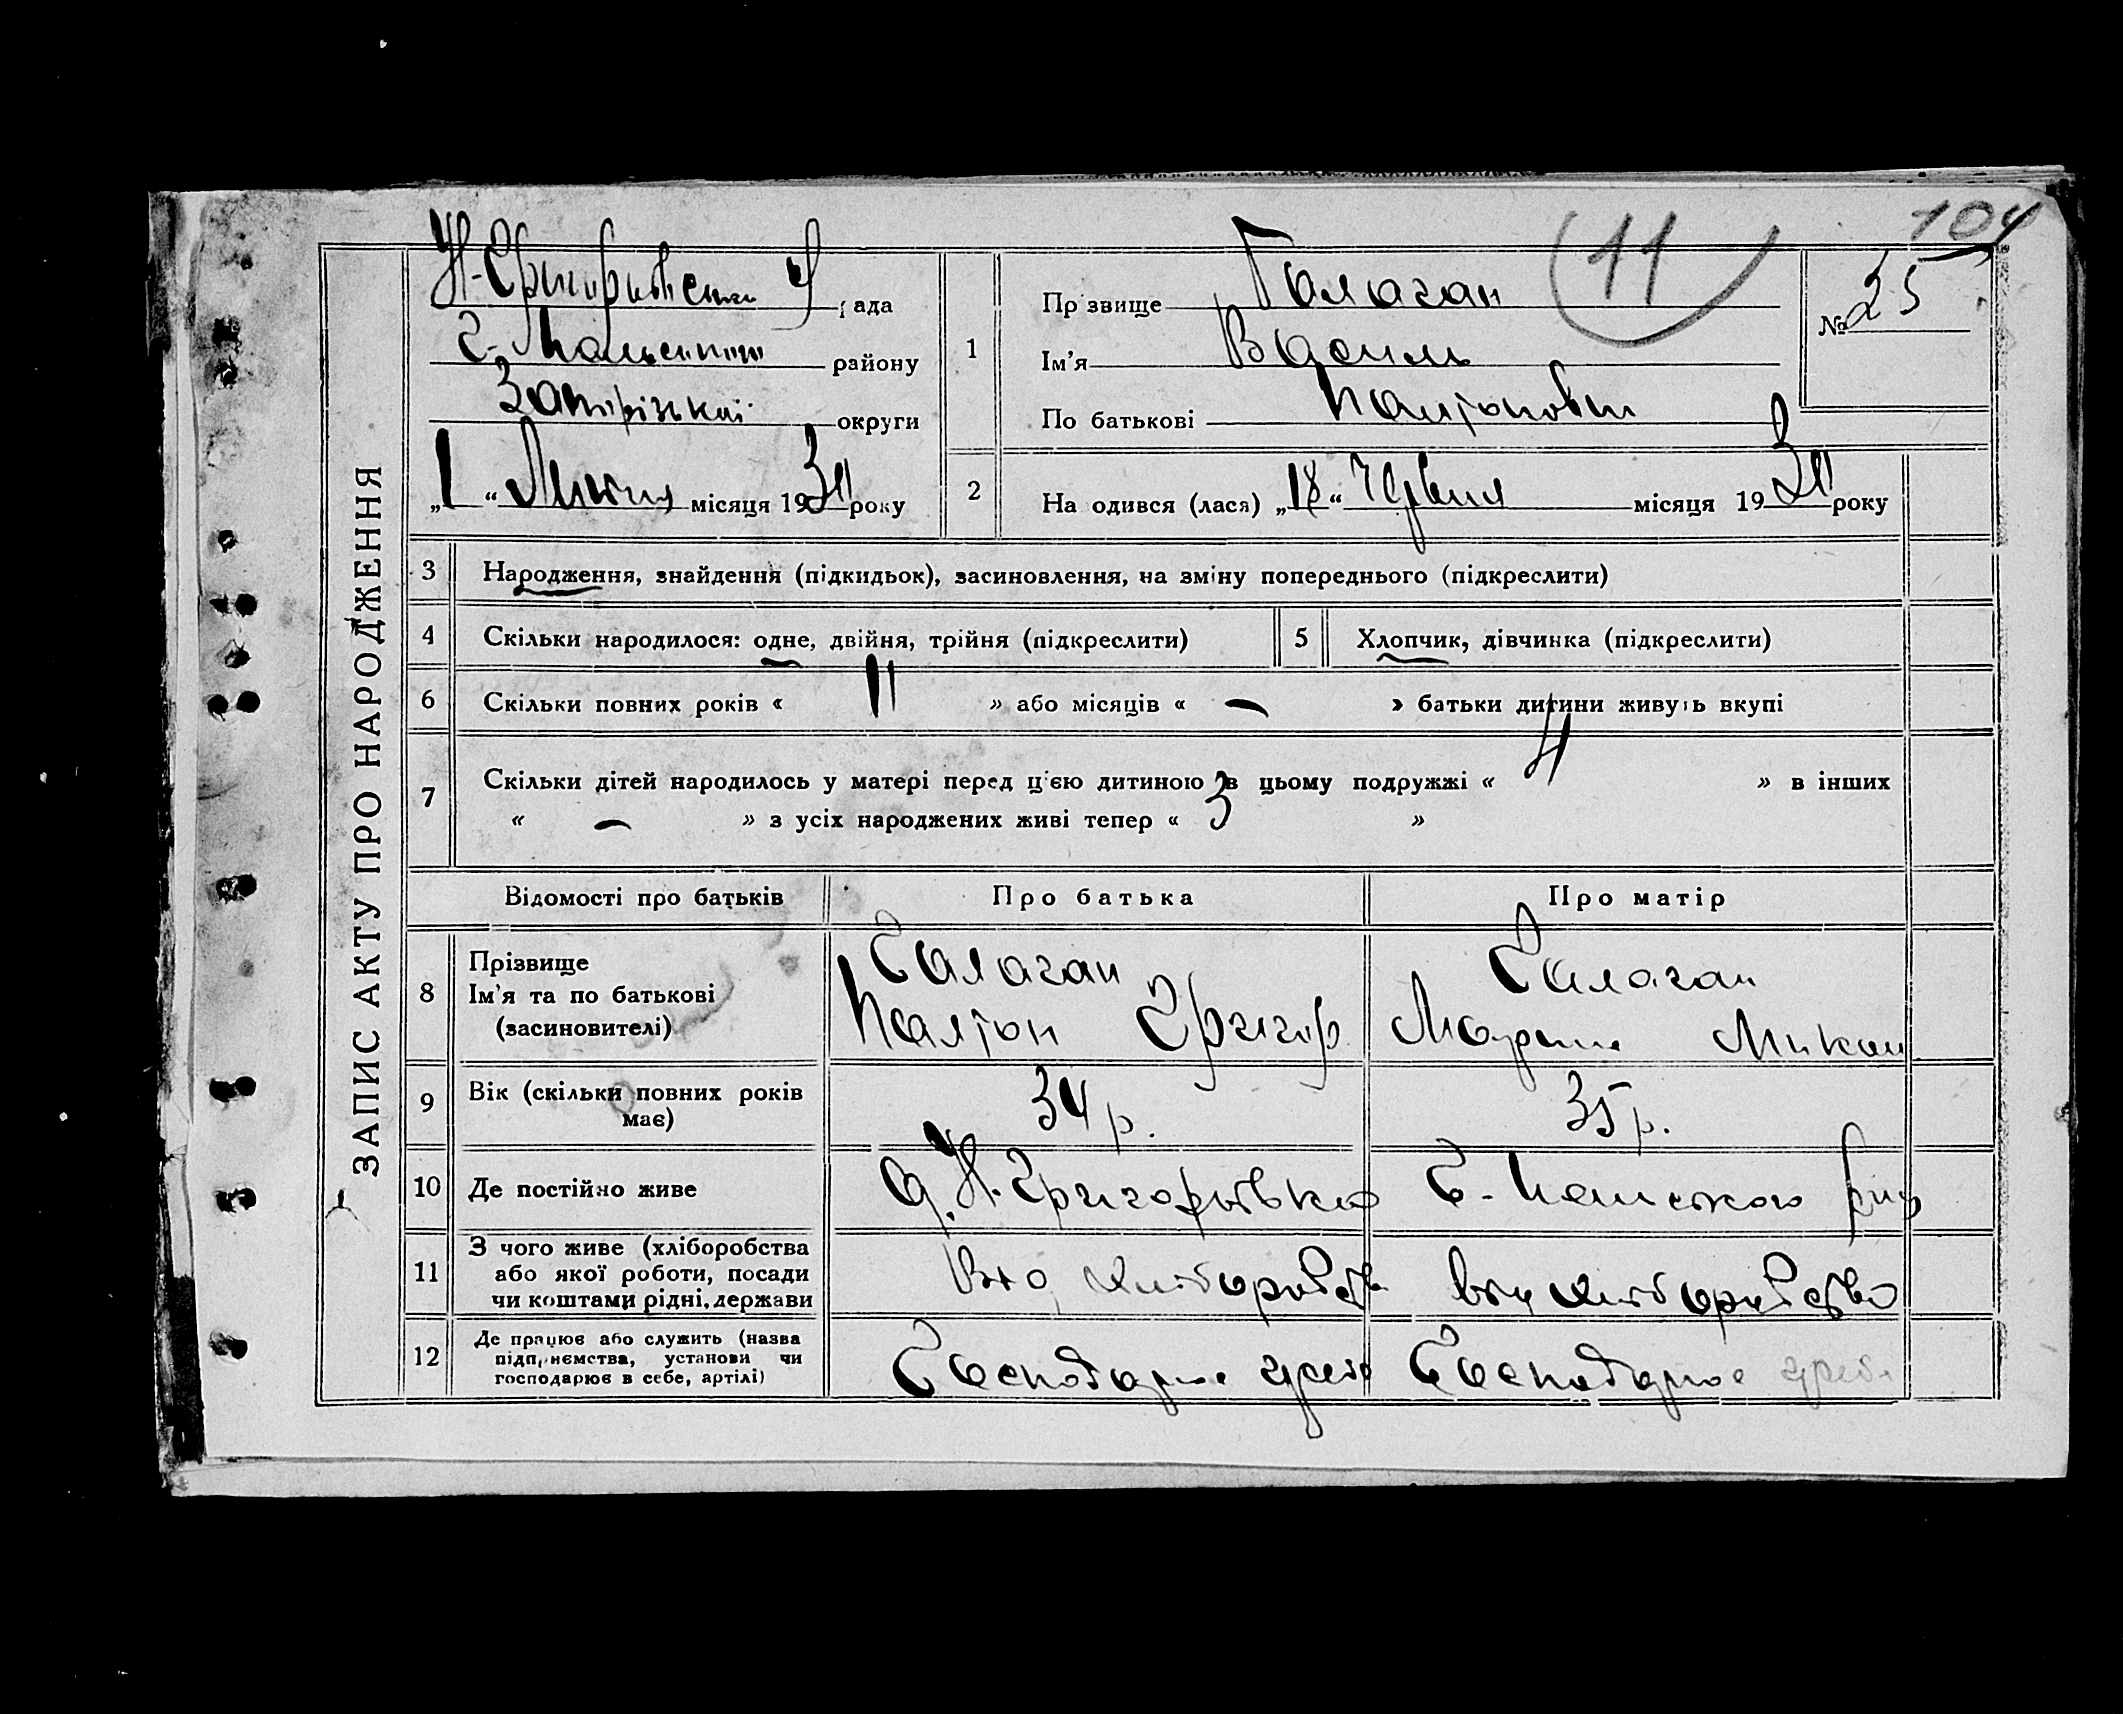 104
(11)
ЗАПИС АКТУ ПРО НАРОДЖЕННЯ
Н-Григорівська рада
району
Запорізької округи
„1“ Липня місяця 1930 року
1
Прізвище Галаган
Ім'я Василь
По батькові
№ 25
2
Народився (лася) „18“ Червня місяця 1930 року
3 Народження, знайдення (підкидьок), засиновлення, на зміну попереднього (підкреслити)
4 Скільки народилося: одне, двійня, трійня (підкреслити)
5 Хлопчик, дівчинка (підкреслити)
6 Скільки повних років « 11 » або місяців « — » батьки дитини живуть вкупі
7 Скільки дітей народилось у матері перед цією дитиною в цьому подружжі « 4 » в інших
« — » з усіх народжених живі тепер « 3 »
Відомості про батьків Про батька Про матір
8 Прізвище
Ім'я та по батькові
(засиновителі)
Галаган
Григор
Галаган
9 Вік (скільки повних років
має)
34 р.
35 р.
10 Де постійно живе
Н-Григорівка
11 З чого живе (хліборобства
або якої роботи, посади
чи коштами рідні, держави
хліборобства
12 Де працює або служить (назва
підприємства, установи чи
господарює в себе, артілі)